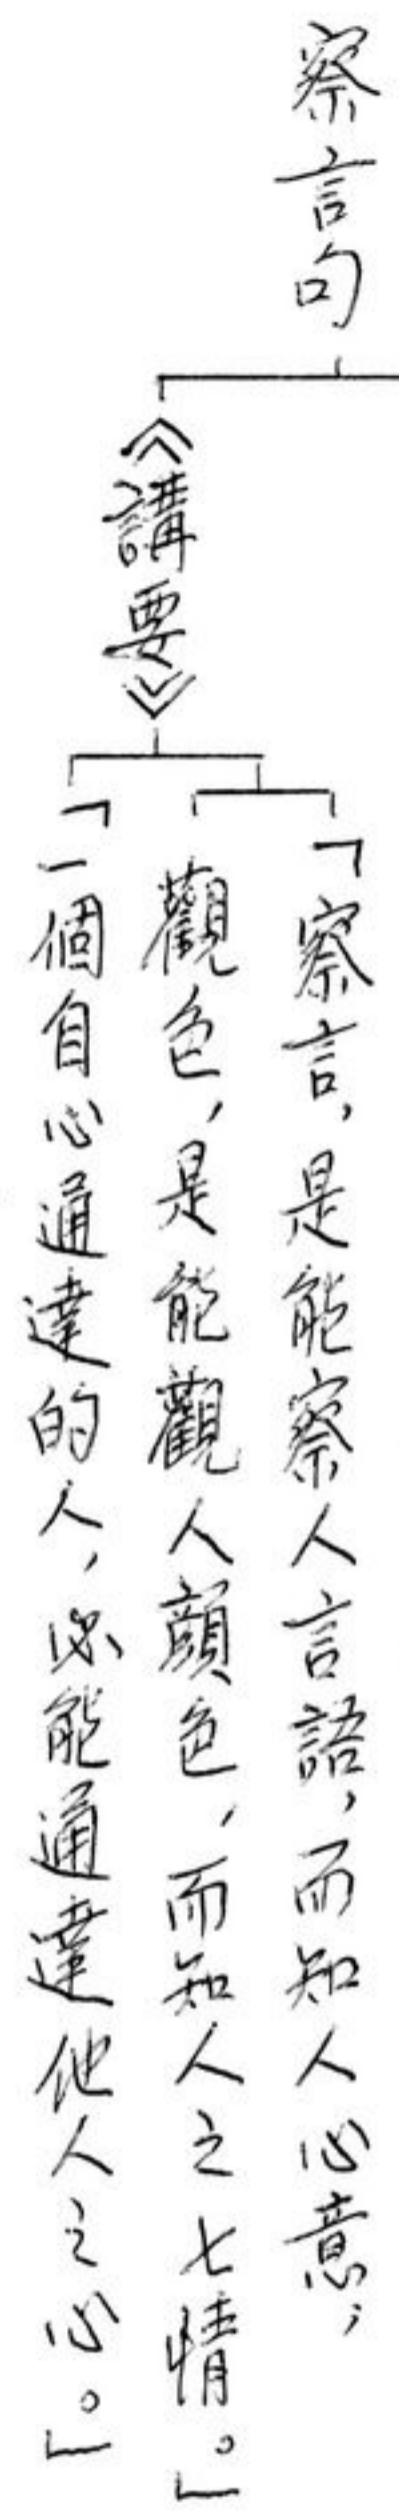 察言句
《講要》
「察言,是能察人言語,而知人心意;
觀色,是能觀人顏色,而知人之七情。」
「一個自心通達的人,必能通達他人之心。」